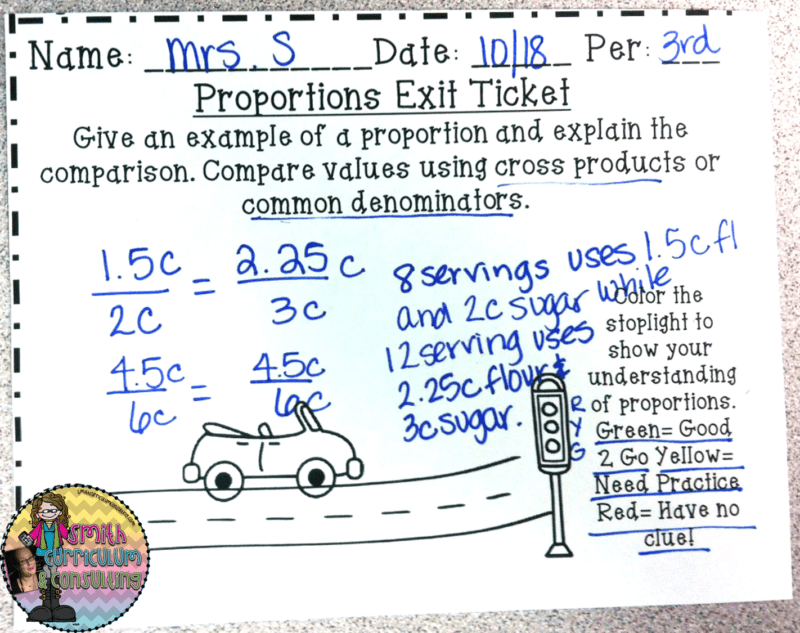 Name: Mrs. S Date: 10/18 Per: 3rd
Proportions Exit Ticket
Give an example of a proportion and explain the
comparison. Compare values using cross products or
common denominators.
1.5c = 2.25c
2c 3c
4.5c = 4.5c
6c 6c
8 servings uses 1.5c fl
and 2c sugar while
12 serving uses
2.25c flour &
3c sugar.
Color the
stoplight to
show your
understanding
of proportions.
Green= Good
2 Go Yellow=
Need Practice
Red= Have no
clue!
R
Y
G
Smith
Curriculum
& Consulting